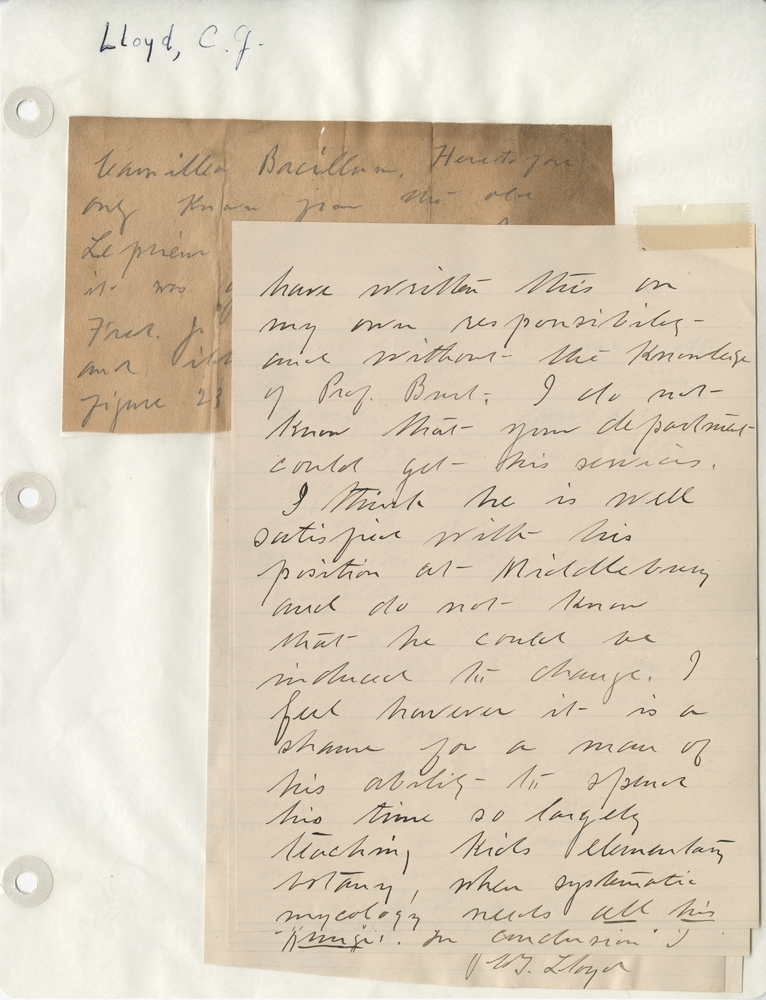 Lloyd, C. G.
Bacillum. Heretofore
only known from the old
Leprieur
it was
Fred.
and
figure 23
have written this on
my own responsibility
and without the knowledge
of Prof. Burt. I do not
know that your department
could get his services.
I think he is well
satisfied with his
position at Middlebury
and do not know
that he could be
induced to change. I
feel however it is a
shame for a man of
his ability to spend
his time so largely
teaching kids elementary
botany, when systematic
mycology needs all his
In conclusion I
Lloyd